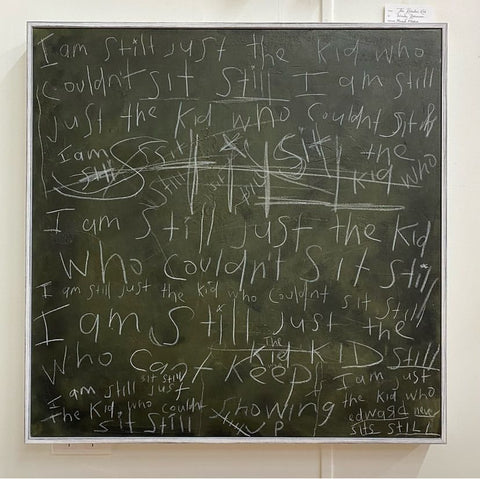 I am still just the kid who
couldn't sit still I am still
just the kid who couldnt sit
I am still sit the
still kid who
I am Still just the Kid
Who couldn't sit still
I am still just the kid who couldnt sit still
I am Still just the
The
Who Can't Keep Kid KID still
sit still
I am still just I am just
The Kid who couldnt Showing the kid who
sit still UP edward never
sits STILL